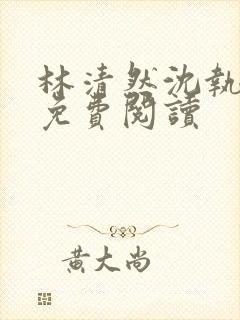 林清然沈執
免費閱讀
黃大尚